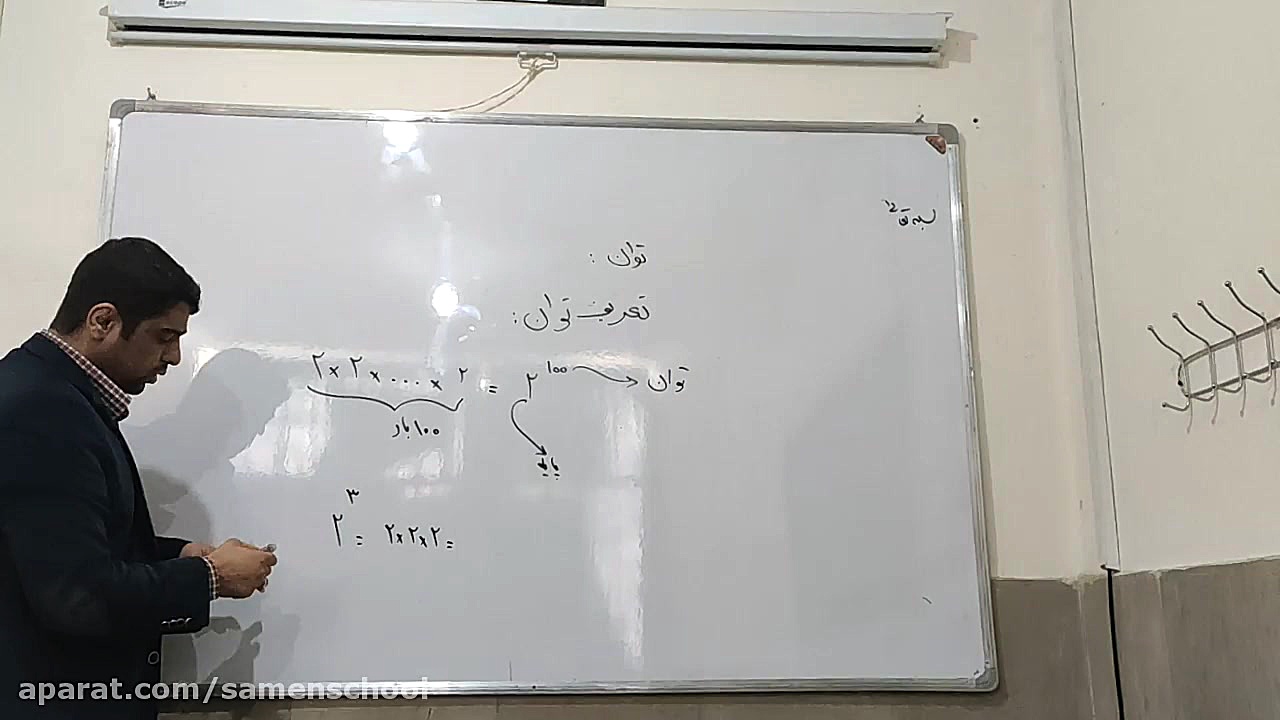 بسمه تعالی
توان :
تعریف توان :
۲ × ۲ × ... × ۲ = ۲^۱۰۰ توان
۱۰۰ بار
پایه
۲^۳ = ۲×۲×۲ =
aparat.com/samenschool